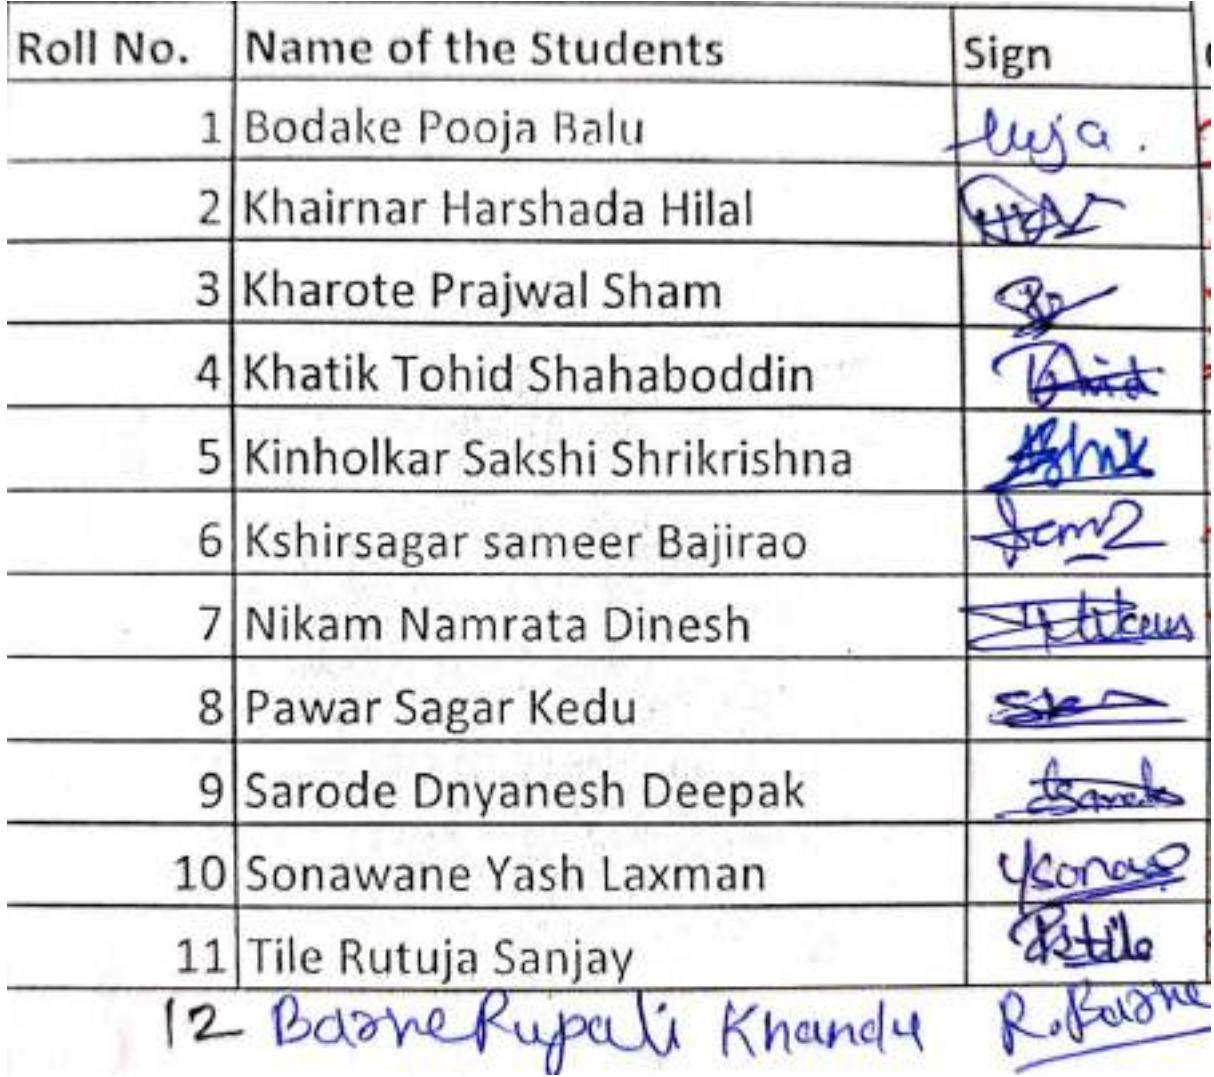 Roll No. Name of the Students Sign
1 Bodake Pooja Balu
2 Khairnar Harshada Hilal
3 Kharote Prajwal Sham
4 Khatik Tohid Shahaboddin
5 Kinholkar Sakshi Shrikrishna
6 Kshirsagar sameer Bajirao
7 Nikam Namrata Dinesh
8 Pawar Sagar Kedu
9 Sarode Dnyanesh Deepak
10 Sonawane Yash Laxman
11 Tile Rutuja Sanjay
12 Barne Rupali Khandu R. Barne